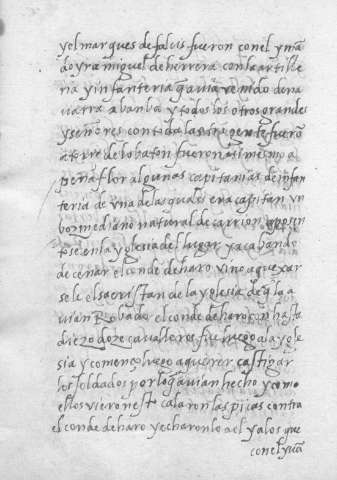 y el marques de falces fueron con el y ma
do yr a miguel de herrera con la artille
ria y infanteria q avia venido de na
varra a banba y todos los otros grandes
y señores con toda la otra gente fuerõ
a torre de lobaton fueron asi mesmo a
peña flor algunas capitanias de infan
teria de vna de las quales era capitan vn
bormediano natural de carrion aposen
tose en la yglesia del lugar y acabando
de cenar el conde de haro vino a quexar
sele el sacristan de la yglesia de q lo a
vian Robado el conde de haro con hasta
diez o doze cavalleros fue luego a la ygle
sia y començo luego a querer castigar
los soldados por lo q avian hecho y como
ellos vieron esto calaron las picas contra
el conde de haro y echaronlo a el y a los que
con el yvã